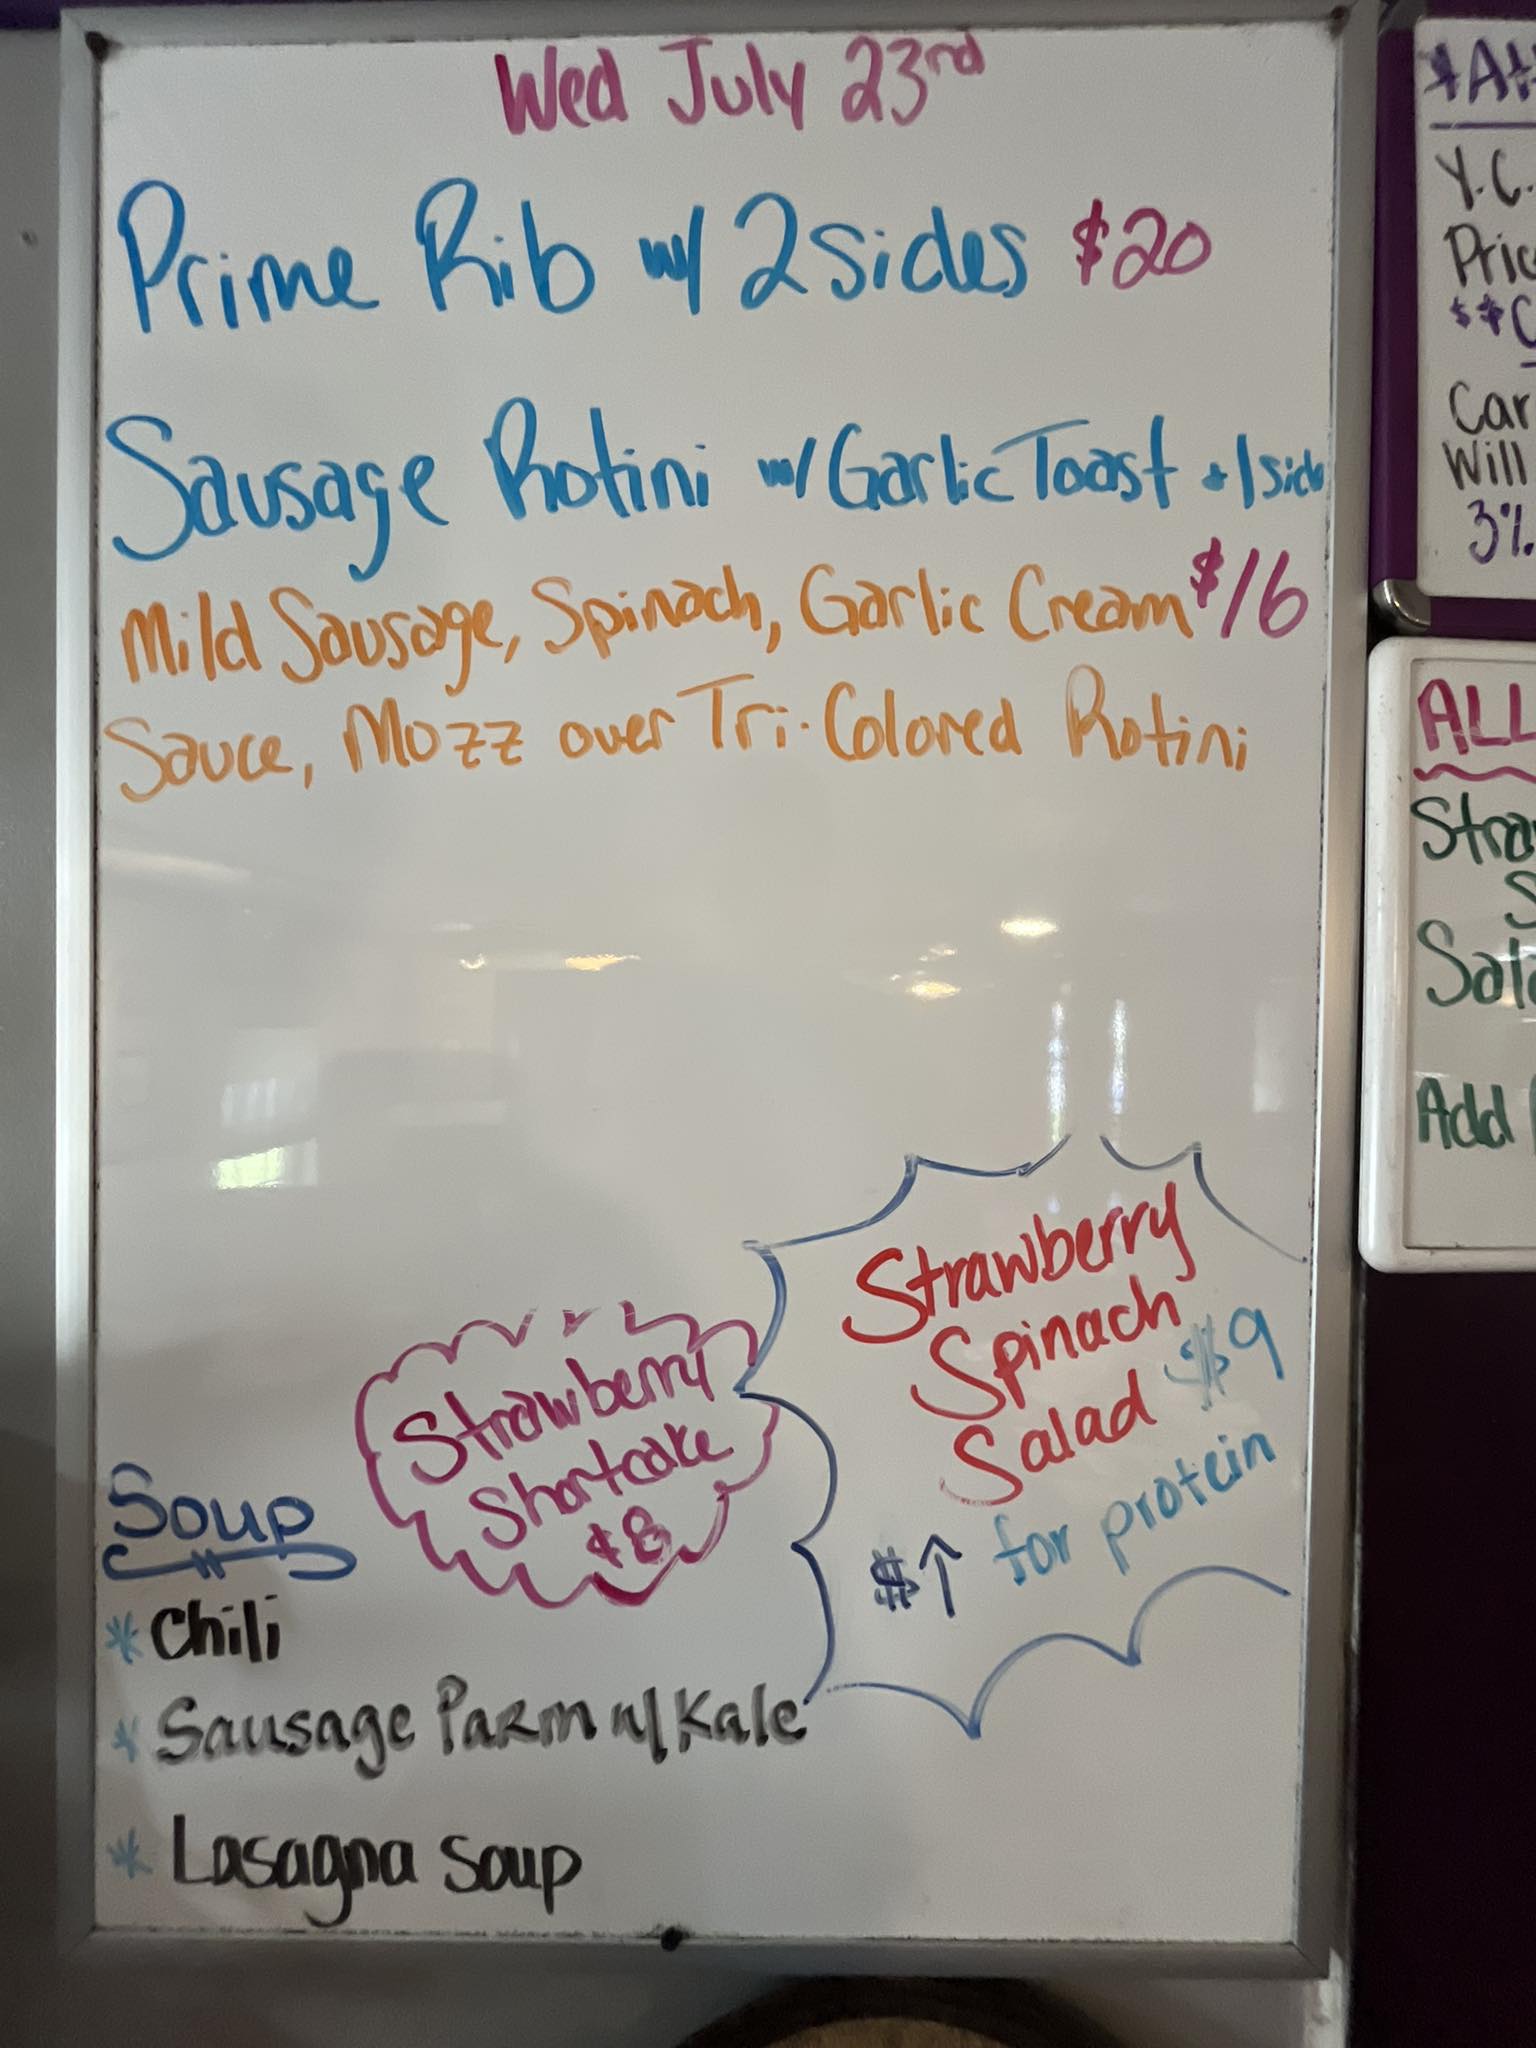 Wed July 23rd
Prime Rib w/ 2 sides $20
Sausage Rotini w/ Garlic Toast + 1 side
Mild Sausage, Spinach, Garlic Cream $16
Sauce, Mozz over Tri-Colored Rotini
Strawberry
Spinach
Salad $9
$↑ for protein
Strawberry
Shortcake
$8
Soup
* Chili
* Sausage Parm w/ Kale
* Lasagna Soup
Y.C.
Car
Will
3%
ALL
Add